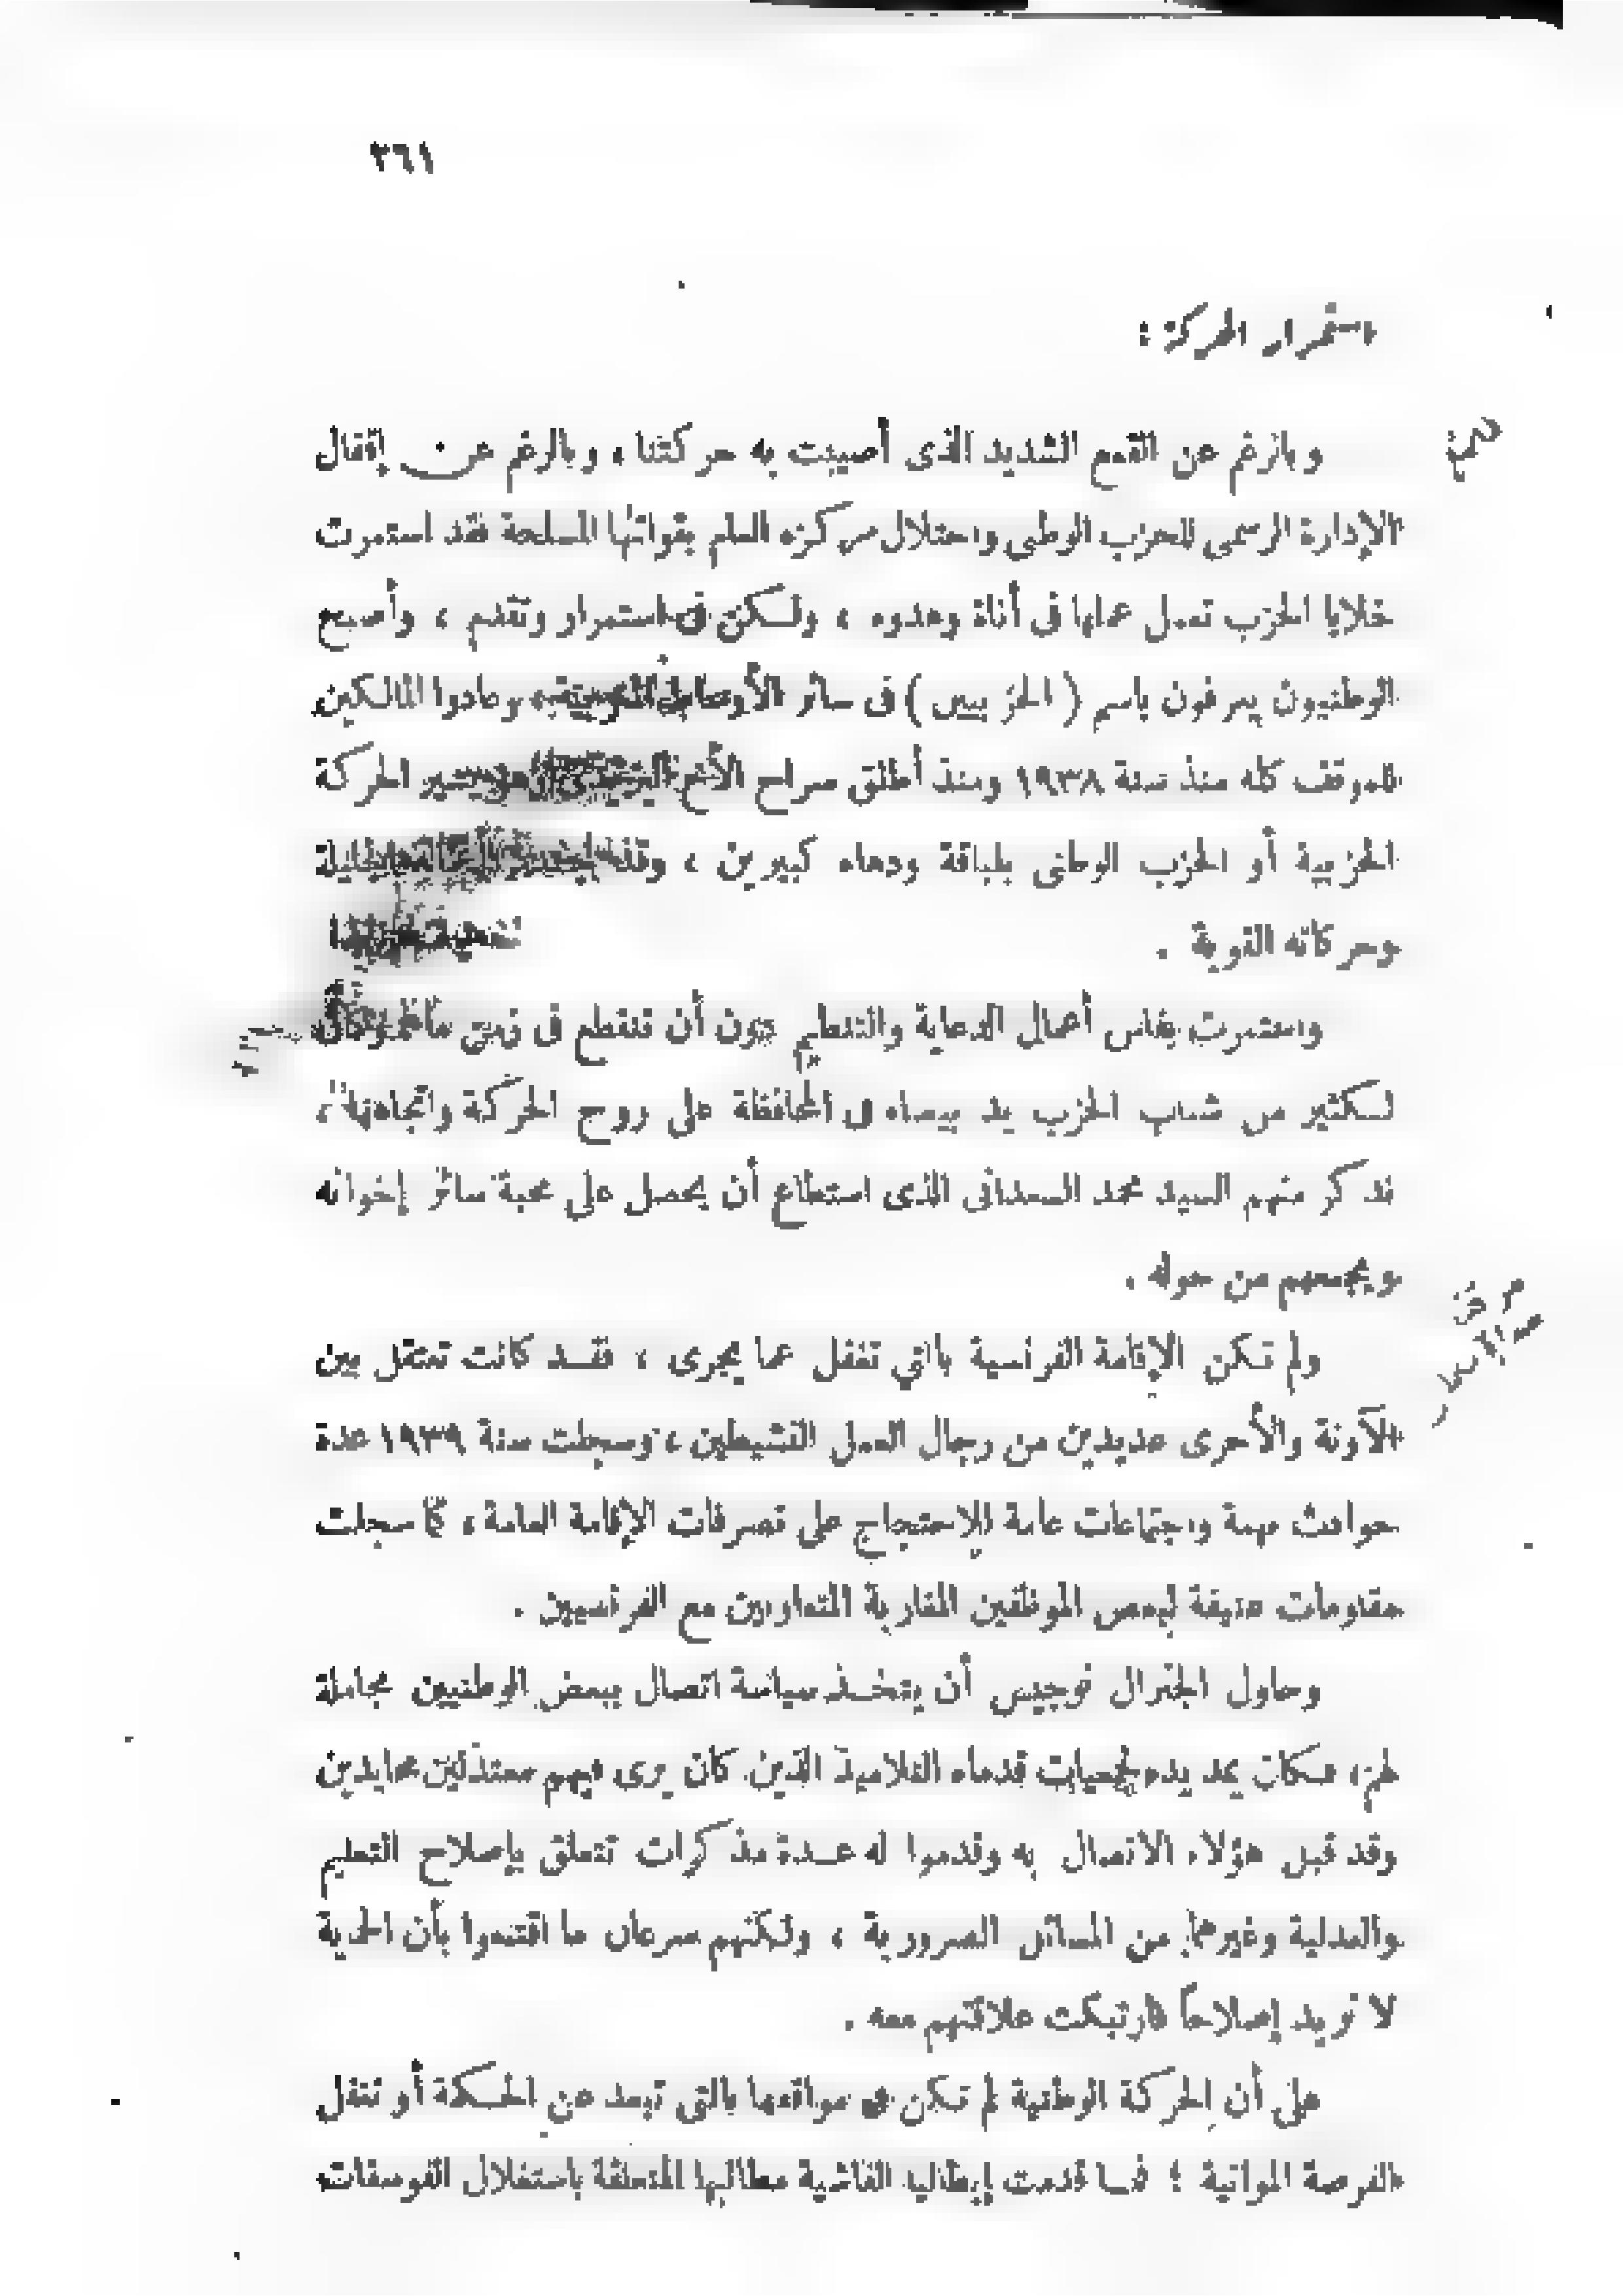 ٣٦١
استمرار الحركة :
وبالرغم عن القمع الشديد الذى أصيبت به حركتنا ، وبالرغم عن إقفال
الإدارة الرسمى للحزب الوطنى واحتلال مركزه العام بقواتها المسلحة فقد استمرت
خلايا الحزب تعمل عملها فى أناة وهدوء ، ولكن فى استمرار وتقدم ، وأصبح
الوطنيون يعرفون باسم ( الحزبيين ) فى سائر وصاروا المالكين
للموقف كله منذ سنة ١٩٣٨ ومنذ أطلق سراح الأخ الحركة
الحزبية أو الحزب الوطنى بلباقة ودهاء كبيرين ، وقد
وحركاته القوية .
واستمرت بفاس أعمال الدعاية والتنظيم دون أن تنقطع فى زمن ما وكان
لكثير من شباب الحزب يد بيضاء فى المحافظة على روح الحركة واتجاهها ،
نذكر منهم السيد محمد السعدانى الذى استطاع أن يحصل على محبة سائر إخوانه
ويجمعهم من حوله .
ولم تكن الإقامة الفرنسية بالتي تغفل عما يجرى ، فقد كانت تعتقل بين
الآونة والأخرى عديدين من رجال العمل النشيطين ، وسجلت سنة ١٩٣٩ عدة
حوادث مهمة واجتماعات عامة للاحتجاج على تصرفات الإقامة العامة ، كما سجلت
مقاومات عنيفة لبعض الموظفين المغاربة المتعاونين مع الفرنسيين .
وحاول الجنرال نوجيس أن يتخذ سياسة اتصال ببعض الوطنيين مجاملة
لهم ، فكان يمد يده لجمعيات قدماء التلاميذ الذين كان يرى فيهم معتدلين محايدين
وقد قبل هؤلاء الاتصال به وقدموا له عدة مذكرات تتعلق بإصلاح التعليم
والعدلية وغيرهما من المسائل الضرورية ، ولكنهم سرعان ما اقتنعوا بأن الحماية
لا تريد إصلاحاً فارتبكت علاقتهم معه .
على أن الحركة الوطنية لم تكن فى مواقعها بالتى تبعد عن الحكمة أو تغفل
الفرصة المواتية ؛ فلما قدمت إيطاليا الفاشية مطالبها المتعلقة باستغلال الفوسفات